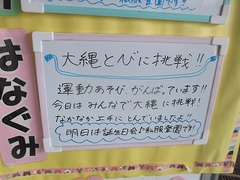 大縄とびに挑戦!!
運動あそび、がんばっています!!
今日はみんなで大縄に挑戦!
なかなか上手にとんでいましたよ!!
明日は誕生日会で私服登園です!
はなぐみ